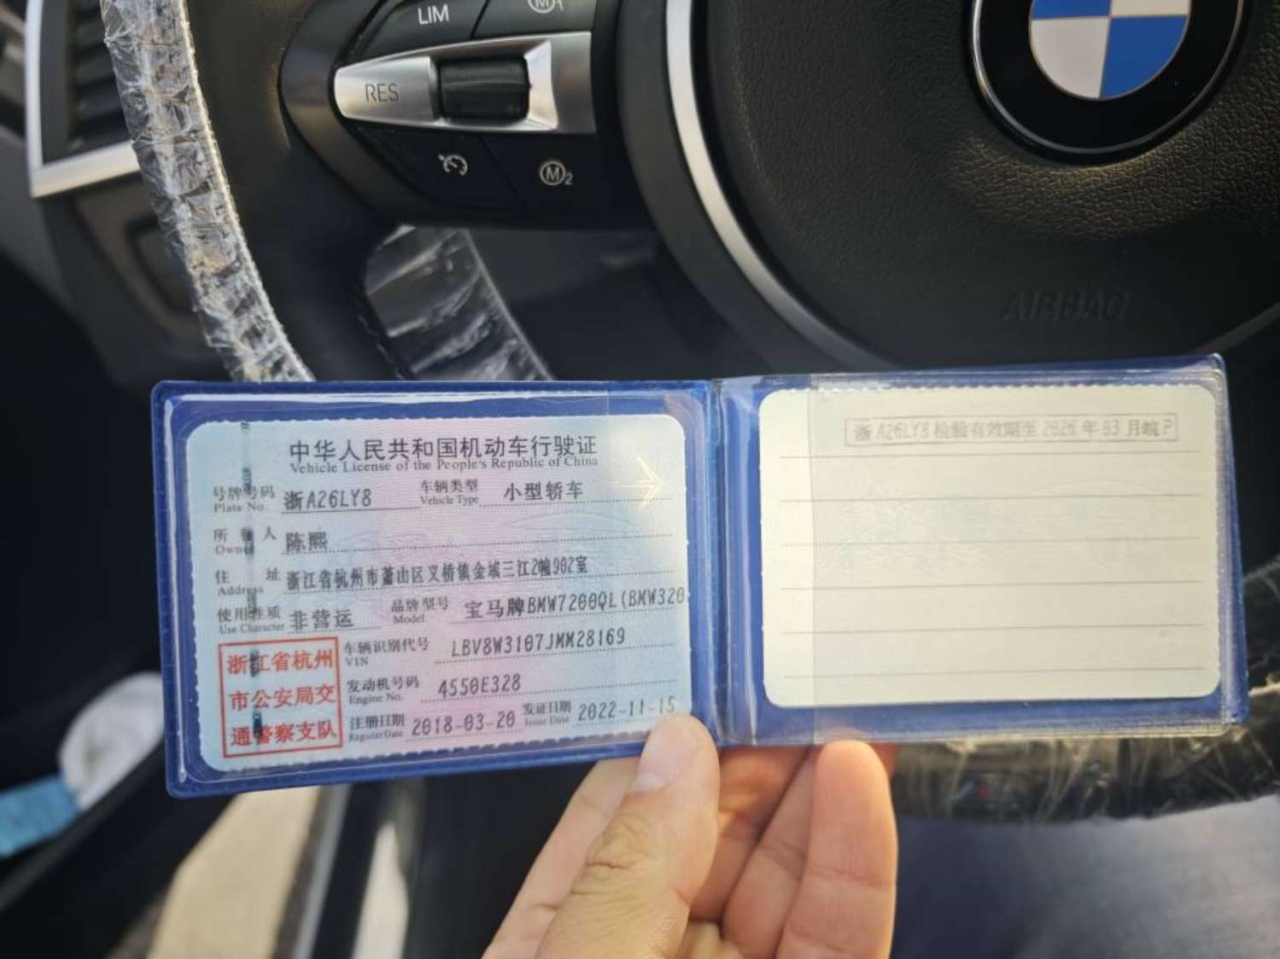 LIM
RES
M2
AIRBAG
中华人民共和国机动车行驶证
Vehicle License of the People's Republic of China
号牌号码 浙A26LY8 车辆类型 小型轿车
Plate No. Vehicle Type
所有人 陈熙
Owner
住址 浙江省杭州市萧山区义桥镇金域三江2幢902室
Address
使用性质 非营运 品牌型号 宝马牌BMW7200QL(BMW320
Use Character Model
浙江省杭州
市公安局交
通警察支队
车辆识别代号 LBV8W3107JMM28169
VIN
发动机号码 4550E328
Engine No.
注册日期 2018-03-20 发证日期 2022-11-15
Register Date Issue Date
浙A26LY8检验有效期至2026年03月皖P